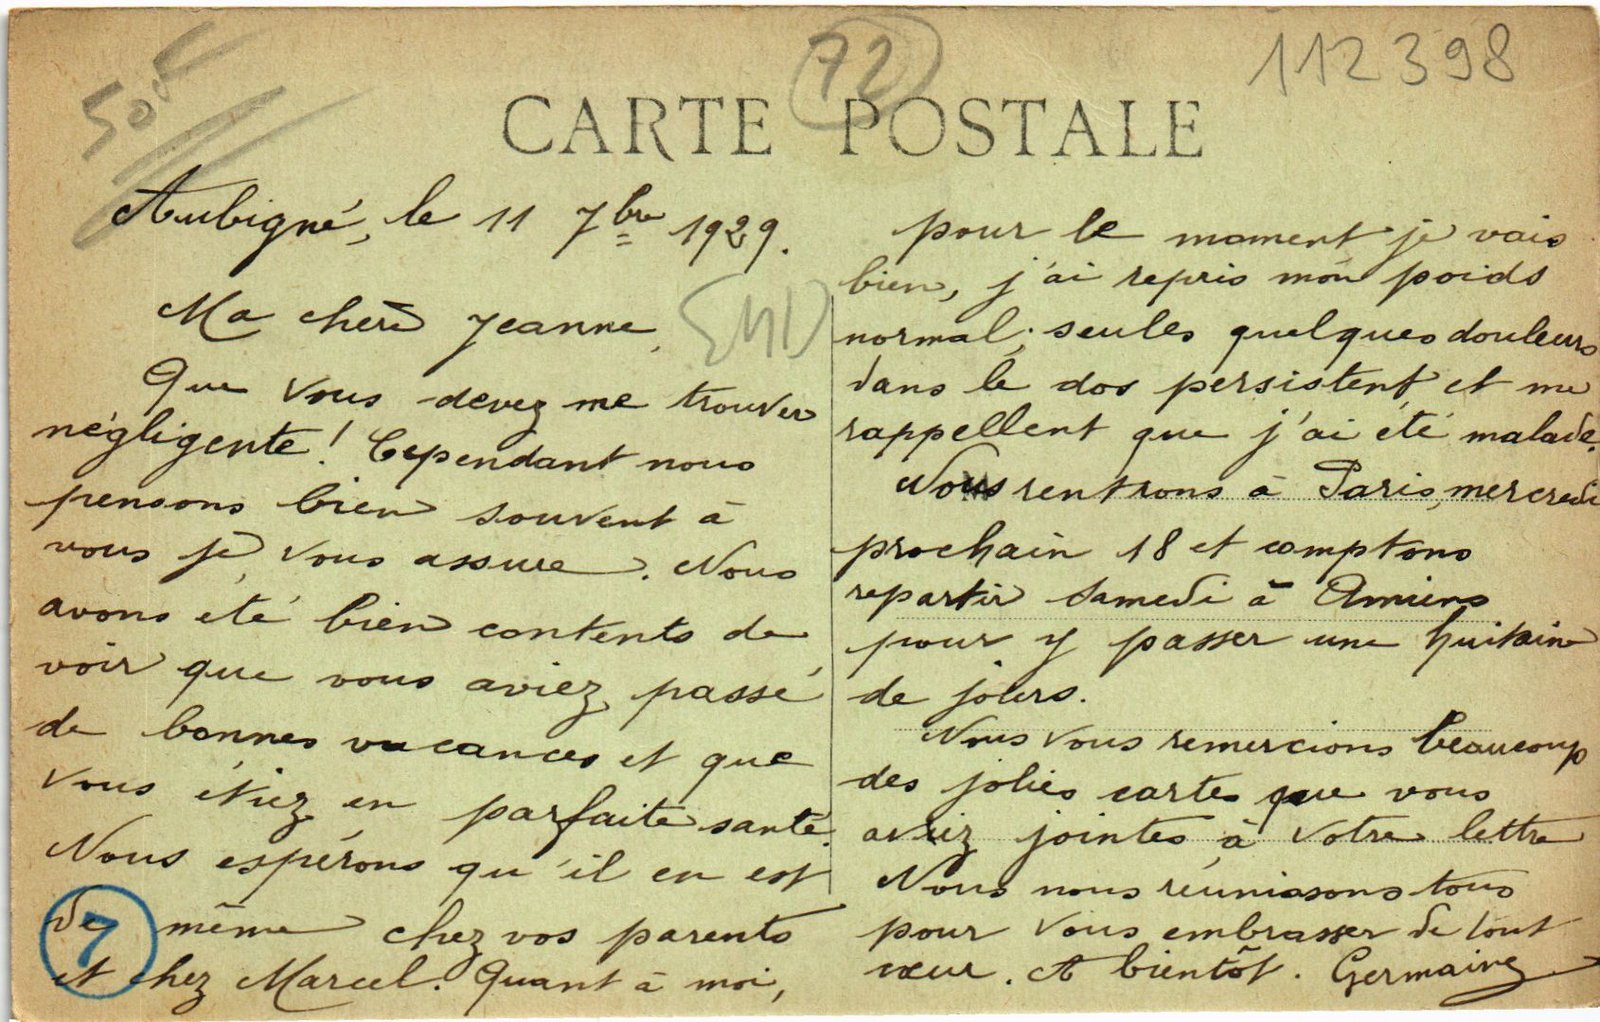 112398
72
CARTE POSTALE
Aubigné, le 11 7bre 1929.
Ma chère Jeanne,
Que vous devez me trouver
négligente! Cependant nous
pensons bien souvent à
vous je vous assure. Nous
avons été bien contents de
voir que vous aviez passé
de bonnes vacances et que
vous étiez en parfaite santé.
Nous espérons qu'il en est
de même chez vos parents
et chez Marcel. Quant à moi,
7
pour le moment je vais
bien, j'ai repris mon poids
normal; seules quelques douleurs
dans le dos persistent et me
rappellent que j'ai été malade.
Nous rentrons à Paris, mercredi
prochain 18 et comptons
repartir samedi à Amiens
pour y passer une huitaine
de jours.
Nous vous remercions beaucoup
des jolies cartes que vous
aviez jointes à votre lettre
Nous nous réunissons tous
pour vous embrasser de tout
cœur. A bientôt. Germaine